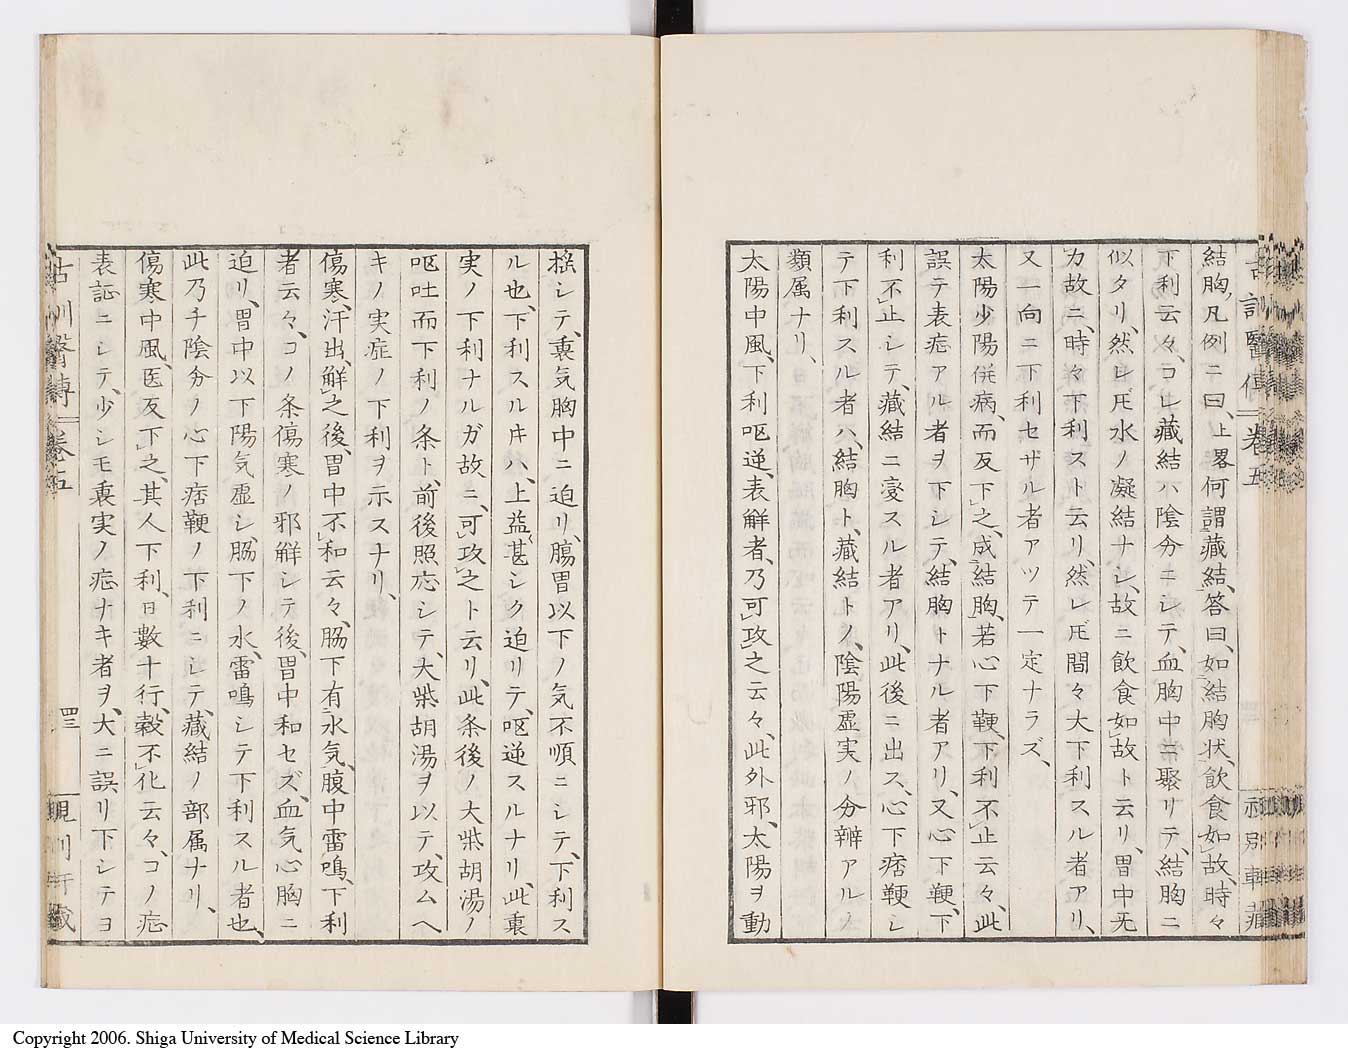 結胸、凡例ニ曰、上畧何謂藏結、答曰、如結胸状、飲食如故、時々
下利云々、コレ藏結ハ陰分ニシテ、血胸中ニ聚リテ、結胸ニ
似タリ、然レ𪜈水ノ凝結ナシ、故ニ飲食如故ト云リ、胃中无
力故ニ、時々下利スト云リ、然レ𪜈間々大下利スル者アリ、
又一向ニ下利セザル者アツテ一定ナラズ、
太陽少陽併病、而反下之、成結胸、若心下鞕、下利不止云々、此
誤テ表症アル者ヲ下シテ、結胸トナル者アリ、又心下鞕、下
利不止シテ、藏結ニ変スル者アリ、此後ニ出ス、心下痞鞕シ
テ下利スル者ハ、結胸ト、藏結トノ、陰陽虚実ノ分辨アルノ
類属ナリ、
太陽中風、下利呕逆、表觧者、乃可攻之云々、此外邪、太陽ヲ動
揺シテ、裏気胸中ニ迫リ、腸胃以下ノ気不順ニシテ、下利ス
ル也、下利スルヰハ、上益甚シク迫リテ、呕逆スルナリ、此裏
実ノ下利ナルガ故ニ、可攻之ト云リ、此条後ノ大柴胡湯ノ
呕吐而下利ノ条ト、前後照応シテ、大柴胡湯ヲ以テ、攻ムヘ
キノ実症ノ下利ヲ示スナリ、
傷寒、汗出、觧之後、胃中不和云々、脇下有水気、腹中雷鳴、下利
者云々、コノ条傷寒ノ邪觧シテ後、胃中和セズ、血気心胸ニ
迫リ、胃中以下陽気虚シ、脇下ノ水、雷鳴シテ下利スル者也、
此乃チ陰分ノ心下痞鞕ノ下利ニシテ、藏結ノ部属ナリ、
傷寒中風、医反下之、其人下利、日數十行、穀不化云々、コノ症
表証ニシテ、少シモ裏実ノ症ナキ者ヲ、大ニ誤リ下シテヨ
古訓醫傳 卷五
四三
Copyright 2006. Shiga University of Medical Science Library